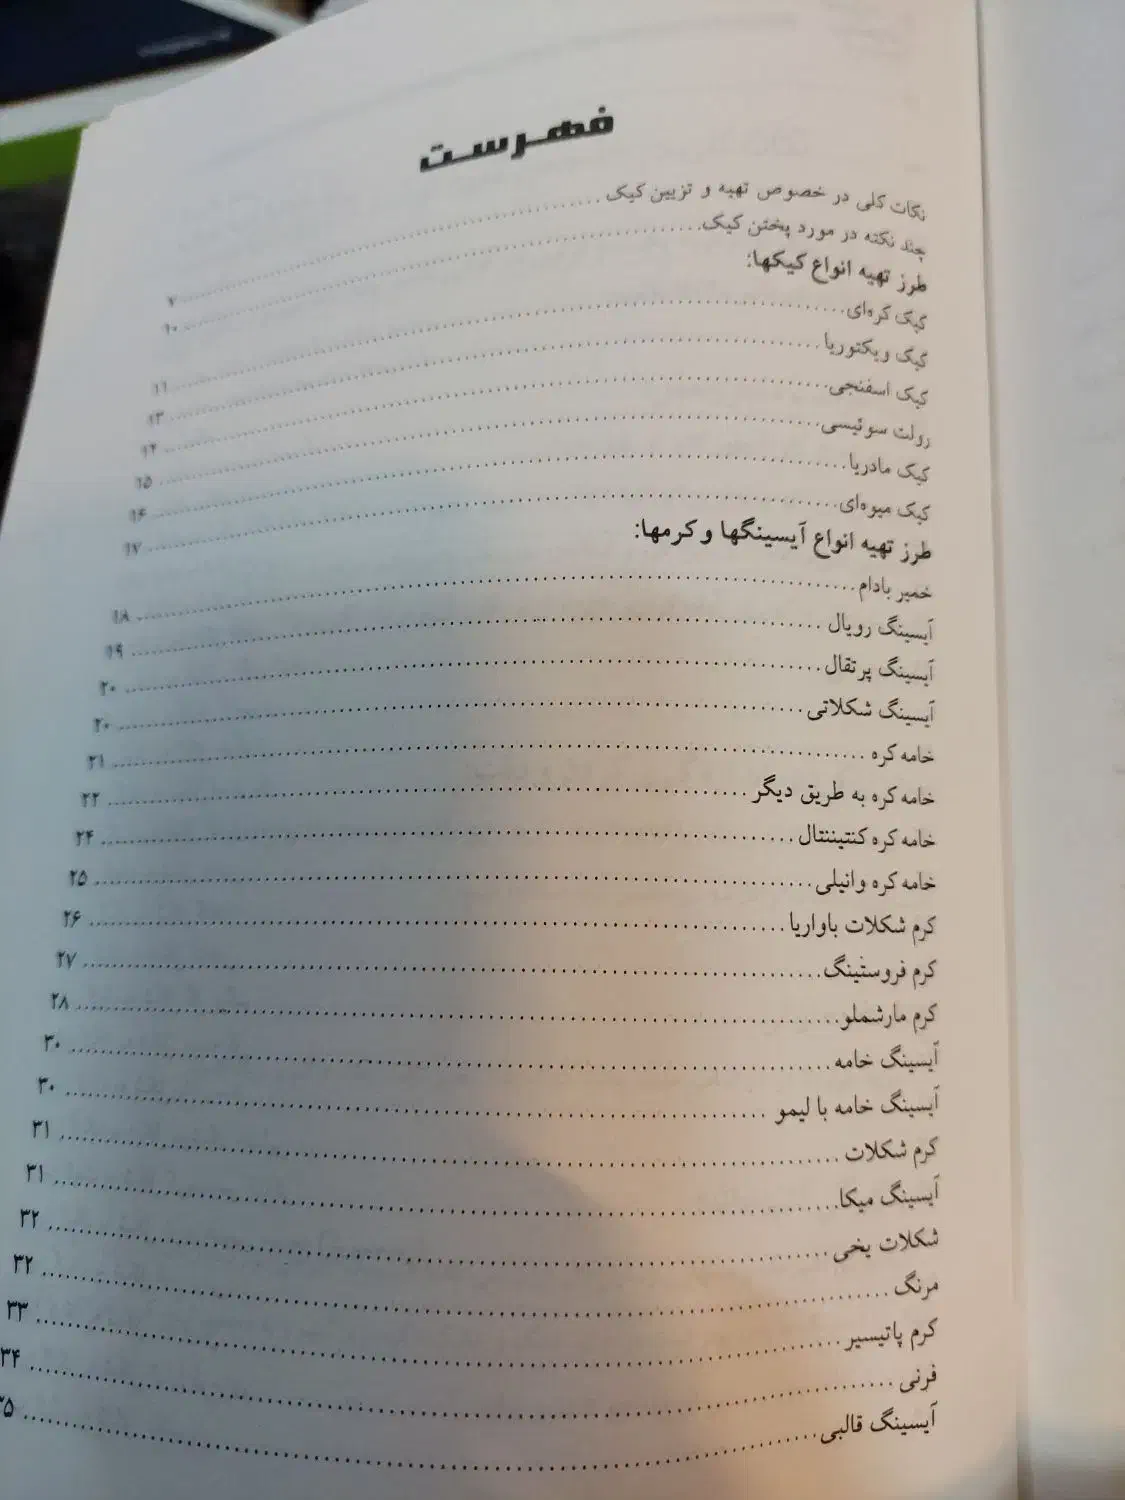 فهرست
نکات کلی در خصوص تهیه و تزیین کیک ........ ۷
چند نکته در مورد پختن کیک ........ ۱۰
طرز تهیه انواع کیکها:
کیک کره‌ای ........ ۱۱
کیک ویکتوریا ........ ۱۳
کیک اسفنجی ........ ۱۴
رولت سوئیسی ........ ۱۵
کیک مادریا ........ ۱۶
کیک میوه‌ای ........ ۱۷
طرز تهیه انواع آیسینگها و کرمها:
خمیر بادام ........ ۱۸
آیسینگ رویال ........ ۱۹
آیسینگ پرتقال ........ ۲۰
آیسینگ شکلاتی ........ ۲۰
خامه کره ........ ۲۱
خامه کره به طریق دیگر ........ ۲۲
خامه کره کنتیننتال ........ ۲۴
خامه کره وانیلی ........ ۲۵
کرم شکلات باواریا ........ ۲۶
کرم فروستینگ ........ ۲۷
کرم مارشملو ........ ۲۸
آیسینگ خامه ........ ۳۰
آیسینگ خامه با لیمو ........ ۳۰
کرم شکلات ........ ۳۱
آیسینگ میکا ........ ۳۱
شکلات یخی ........ ۳۲
مرنگ ........ ۳۲
کرم پاتیسیر ........ ۳۳
فرنی ........ ۳۴
آیسینگ قالبی ........ ۳۵